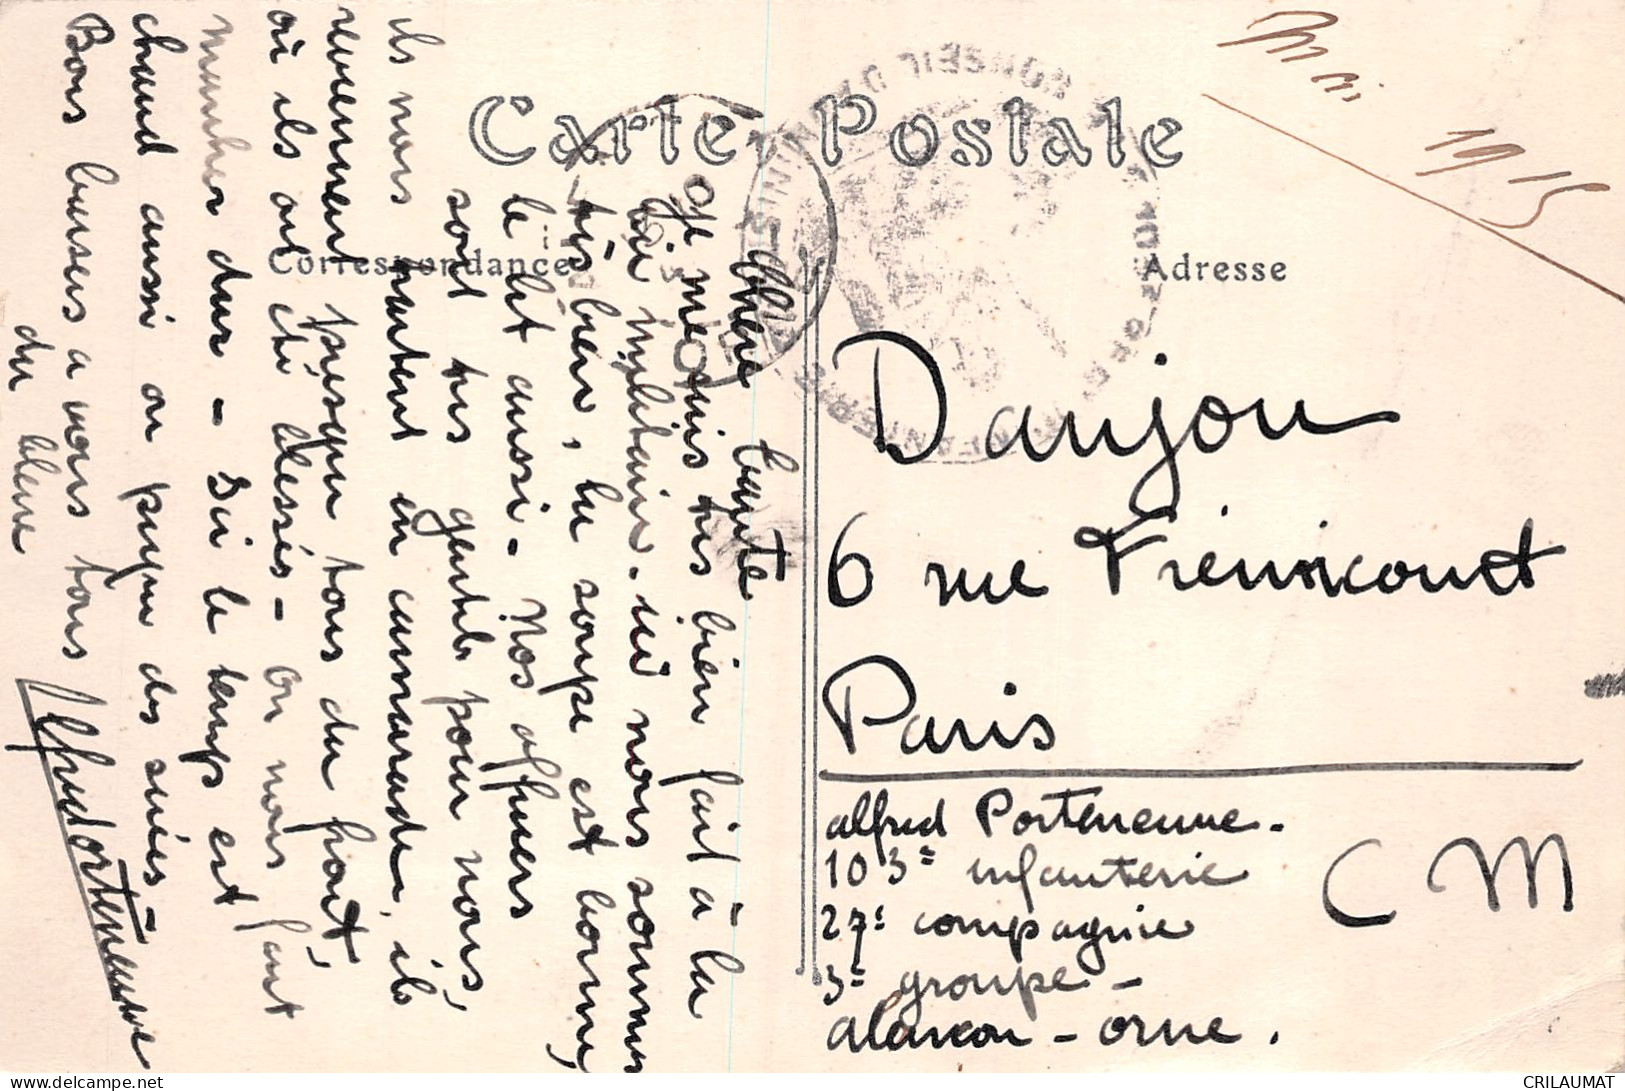 Carte Postale
Correspondance
Adresse
Mai
1915
Chère tante
je me suis très bien fait à la
vie militaire. ici nous sommes
très bien, la soupe est bonne,
le lit aussi. Nos officiers
sont très gentils pour nous,
ils nous traitent en camarade, ils
reviennent presque tous du front,
où ils ont été blessés - on nous fait
marcher dur - Ici le temps est
chaud aussi on pique des suées -
Bons baisers a vous tous
du bleu
APorteneuve
Danjou
6 rue Frémicourt
Paris
alfred Porteneuve.
103e infanterie
27e compagnie
3e groupe -
alencon - orne.
CM
CRILAUMAT